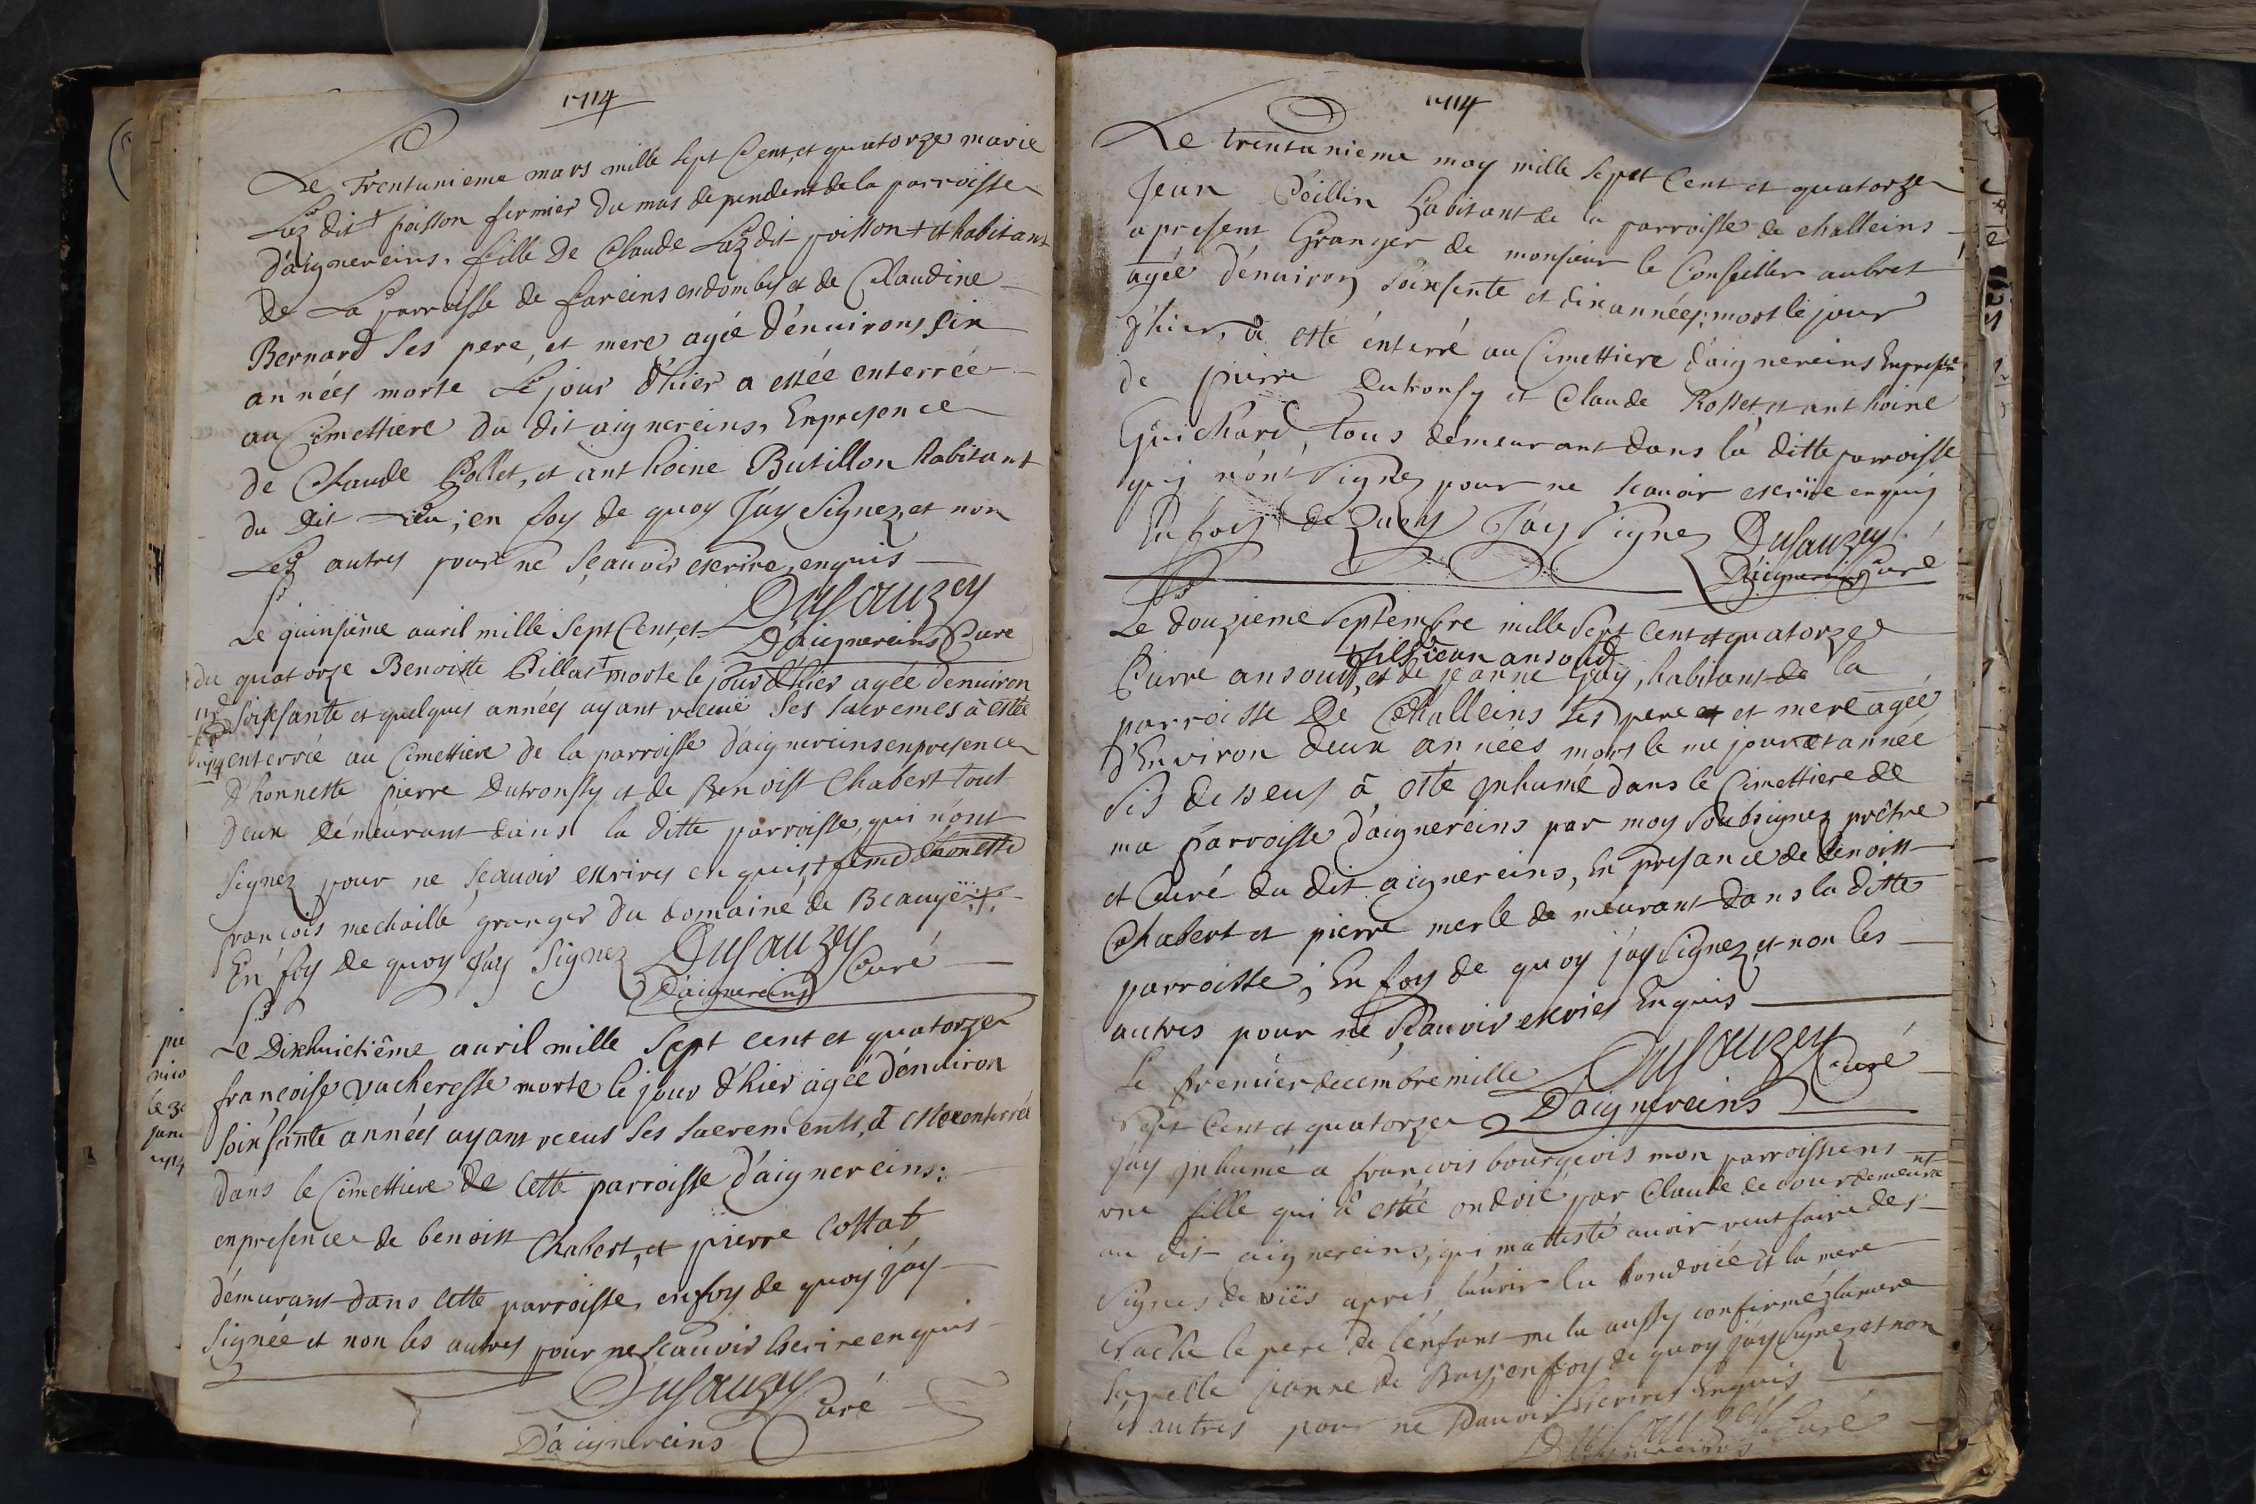 1714
Le Trentunieme mars mille sept Cent, et quatorze marie
Laz dit + poisson fermier du mas dependent de la parroisse
d'aignereins. fille de Claude Laz dit poisson + et habitant
de La parroisse de fareins en dombes et de Claudine
Bernard ses pere, et mere agée d'enuirons six
années morte Le jour d'hier a estée enterrée
au Cimettiere du dit aignereins, En presence
de Claude Collet, et anthoine Butillon habitant
du dit Lieu; en foy de quoy J'ay signez, et non
Les autres pour ne sçauoir escrire, enquis
Dusauzey
D'aignereins Curé
Le quinsiême auril mille sept Cent, et
quatorze Benoiste Billat + morte le jour d'hier agée d'enuiron
soixsante et quelques années ayant receue ses sacremes à estée
enterrée au Cimettiere de la parroisse d'aignereins en presence
d'honneste pierre Dutronssy et de Benoist Chabert tout
deux démeurant dans la ditte parroisse, qui n'ont
signez pour ne sçauoir escrires enquis, + feme d'honeste
françois mechaille granger du domaine de Beauye
En foy de quoy J'ay signez Dusauzey
D'aignereins Curé
Le Dixhuictiême auril mille sept cent et quatorze
françoise vacheresse morte le jour d'hier agée d'énuiron
soixsante années ayant receus ses sacrements, à estée enterrée
dans le Cimettiere de cette parroisse d'aignereins:
en presence de benoist Chabert, et pierre Cottat
démeurant dans cette parroisse, en foy de quoy j'ay
signée et non les autres pour ne scauoir escrire enquis
Dusauzey
D'aignereins Curé
1714
Le trentunieme may mille sept Cent et quatorze
Jean Peillin habitant de la parroisse de challeins
a present Granger de monsieur le Conseiller aubret
agée d'énuiron soixsente et dix années; mort le jour
d'hier, a esté énterré au Cimettiere d'aignereins En presence
de pierre Dutronssy et Claude Rosset, et anthoine
Guichard, tous démeurant dans la ditte parroisse
qui n'ont signez pour ne scauoir escrire enquis
En foy de quoy J'ay signez Dusauzey
D'aignereins Curé
Le douzieme septembre mille sept cent et quatorze
fils Jean ansoud
Pierre ansoud, et de jeanne Gay, habitant de la
parroisse De Challeins ses pere et mere agée
d'Environ deux années mort le me jour et année
sis dessus à esté inhumé dans le Cimettiere de
ma parroisse d'aignereins par moy soubsignez prêtre
et Curé du dit aignereins, En presance de benoist
Chabert et pierre merle demeurant dans la ditte
parroisse; En foy de quoy j'ay signez, et non les
autres pour ne sçauoir escrires Enquis
Dusauzey
D'aignereins Curé
Le premier decembre mille
sept Cent et quatorze
j'ay inhumé a françois bourgeois mon parroissiens
une fille qui à estée ondoié par Claude de cour demeurant
au dit aignereins, qui m'a attesté auoir veut faire des
signes de viës apres l'auoir
le pere de l'enfant me la aussy confirmé, la mere
sapelle janne de Brus, en foy de quoy j'ay signez et non
les autres pour ne sçauoir escrires Enquis
Curé